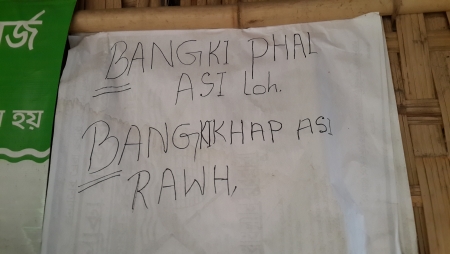 র্জ
হয়
BANGKI PHAL
ASI Loh.
BANGKKHAP ASI
RAWH,